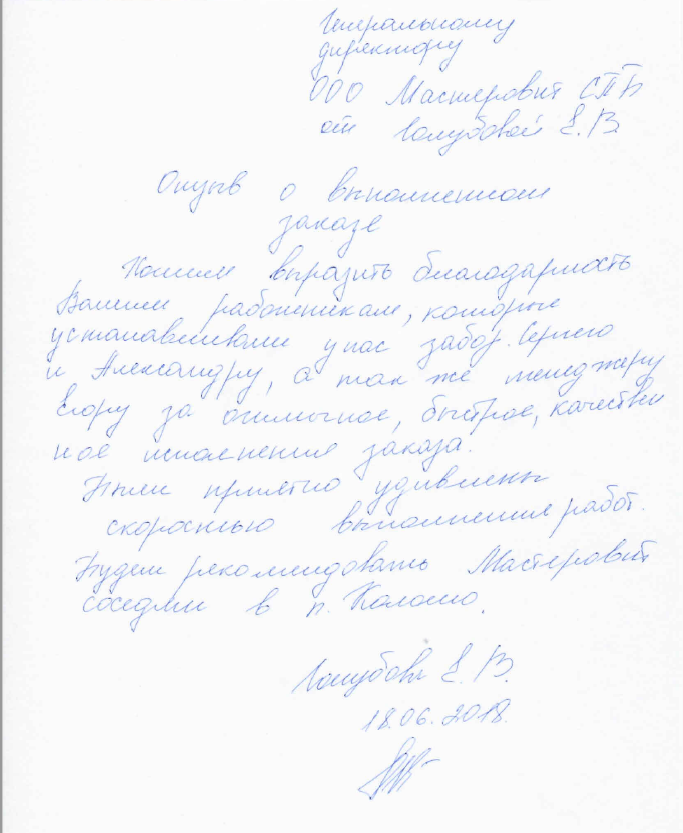 Генеральному
директору
ООО Мастеровит СПБ
от Голубовой Е.В
Отзыв о выполненном
заказе
Хотим выразить благодарность
Вашим работникам, которые
устанавливали у нас забор. Сергею
и Александру, а так же менеджеру
Егору за отличное, быстрое, качествен
ное исполнение заказа.
Были приятно удивлены
скоростью выполнения работ.
Будем рекомендовать Мастеровит
соседям в п.
Голубова Е.В.
18.06.2018.